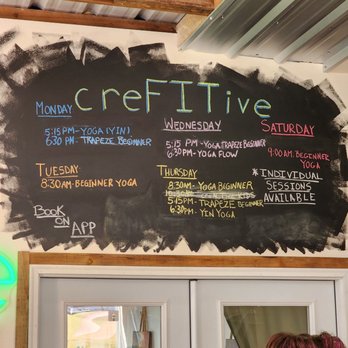 creFITive
MONDAY
5:15 PM - YOGA (YIN)
6:30 PM - TRAPEZE BEGINNER
WEDNESDAY
5:15 PM - YOGA TRAPEZE BEGINNER
6:30 PM - YOGA FLOW
SATURDAY
9:00 AM. BEGINNER
YOGA
* INDIVIDUAL
SESSIONS
AVAILABLE
TUESDAY
8:30 AM - BEGINNER YOGA
THURSDAY
8:30 AM - YOGA BEGINNER
5:15 PM - TRAPEZE BEGINNER
6:30 PM - YIN YOGA
BOOK
ON
APP